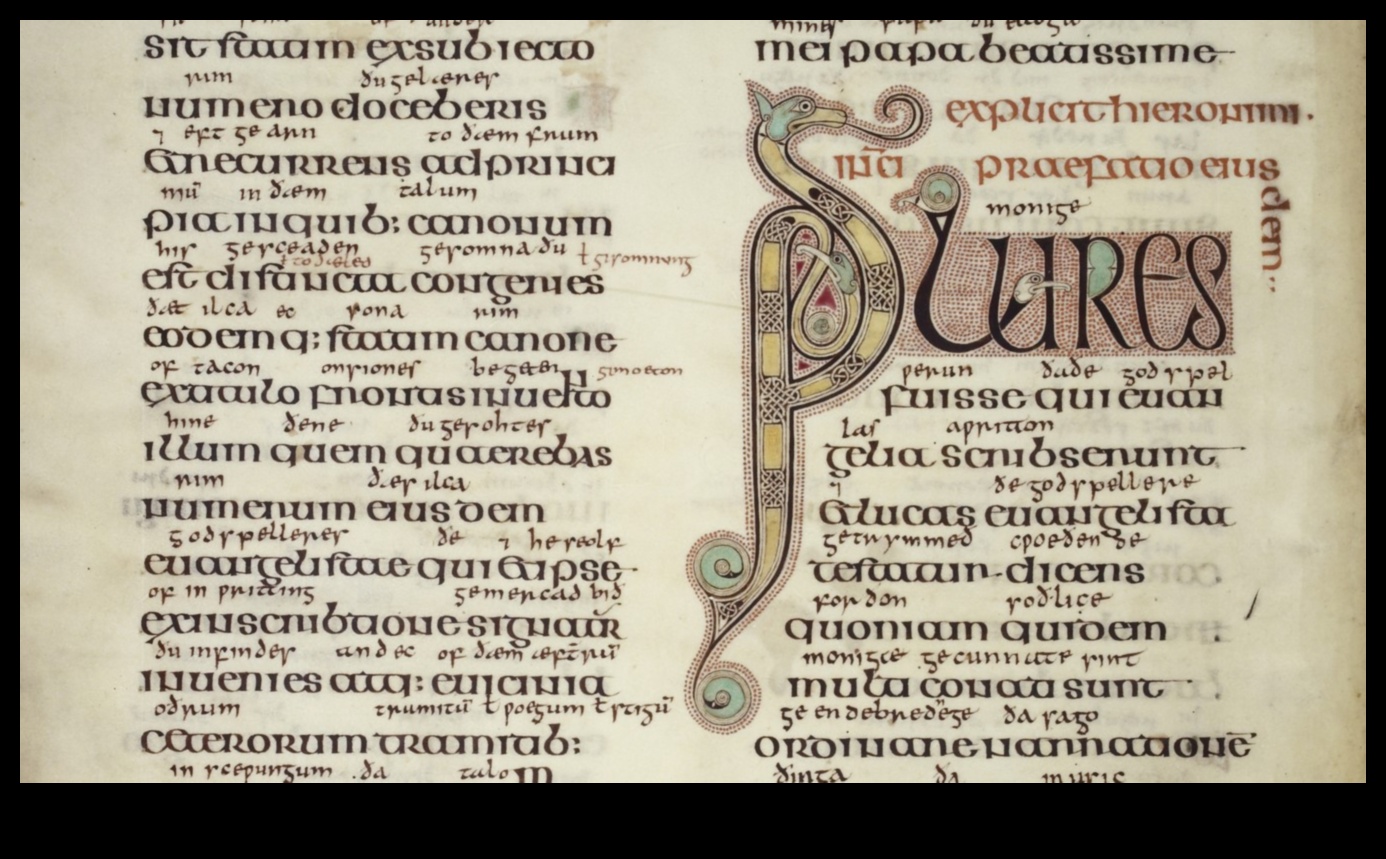 sit statim exsubiecto
rim du gelæner
numero doceberis
⁊ eft geærn to dæm frum
etrecurrens adprinci
mu in dæm talum
pia inquib; canonum
his gesceaden geromna du ł gisomnung
ł todæled
est distincta congeries
dæt ilca ec sona rim
eodemq; statim canone
of tacon onsiones begeten
extitulo frontis inuento
hine dene du gesohtes
illum quem quaerebas
rim des ilca
numerum eiusdem
godspelleres de ⁊ he seolf
euangelistae qui et ipse
of in pritting gemercad bid
exinscribtione signatur
du infindes and ec of dæm æft
inuenies atq; euicinia
odrum ł poegum ł stigu
ceterorum tramitib;
in scepungum da talo
mei papa beatissime
explicit hieronimi.
incipit praefatio eiusdem
monige
PLURES
perun dade godspel
fuisse qui euan
las apritton
gelia scribserunt
⁊ de godspellere
et lucas euangelista
getrymmed cpoeden de
testatur dicens
fordon sodlice
quoniam quidem
monige gecunnate sint
multi conati sunt
ge endebrednege da sago
ordinare narrationē